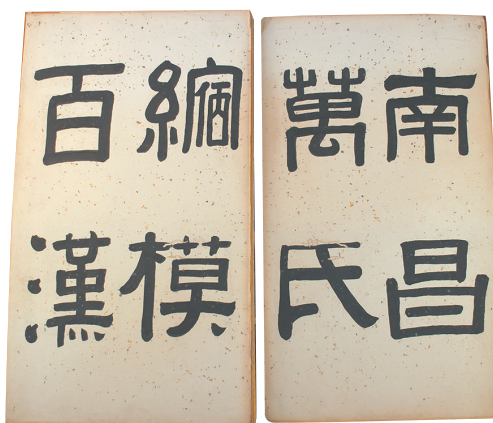 南昌
萬氏
縮模
百漢